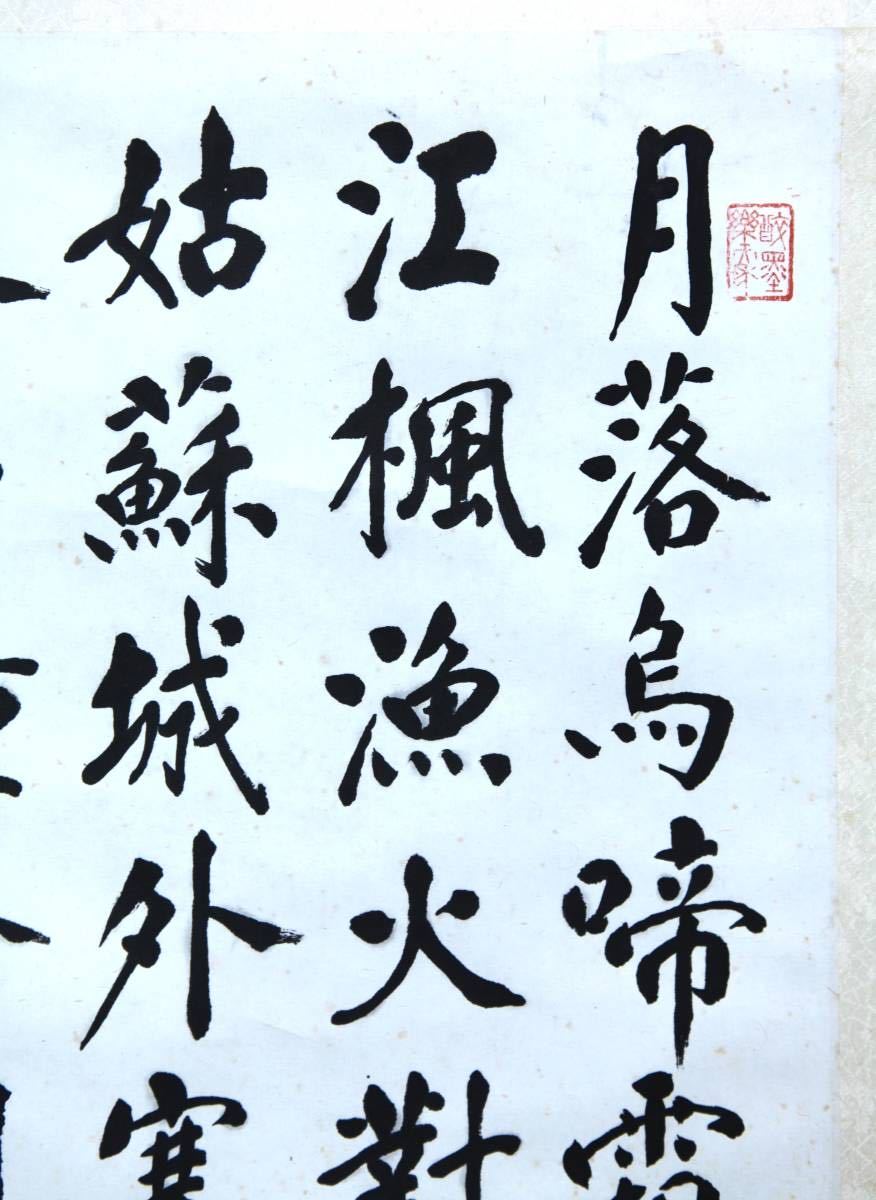 月落烏啼霜
江楓漁火對
姑蘇城外寒